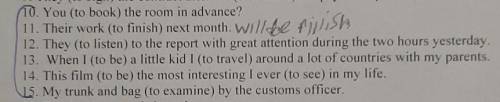 10. You (to book) the room in advance?
11. Their work (to finish) next month. will be finish
12. They (to listen) to the report with great attention during the two hours yesterday.
13. When I (to be) a little kid I (to travel) around a lot of countries with my parents.
14. This film (to be) the most interesting I ever (to see) in my life.
15. My trunk and bag (to examine) by the customs officer.